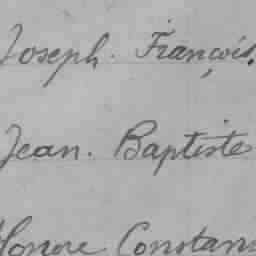 Joseph. François.
Jean. Baptiste
Honoré Constans